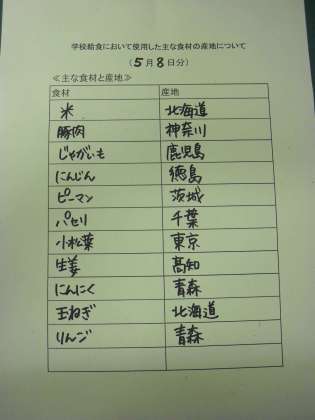 学校給食において使用した主な食材の産地について
(5月8日分)
≪主な食材と産地≫
食材 産地
米 北海道
豚肉 神奈川
じゃがいも 鹿児島
にんじん 徳島
ピーマン 茨城
パセリ 千葉
小松葉 東京
生姜 高知
にんにく 青森
玉ねぎ 北海道
りんご 青森